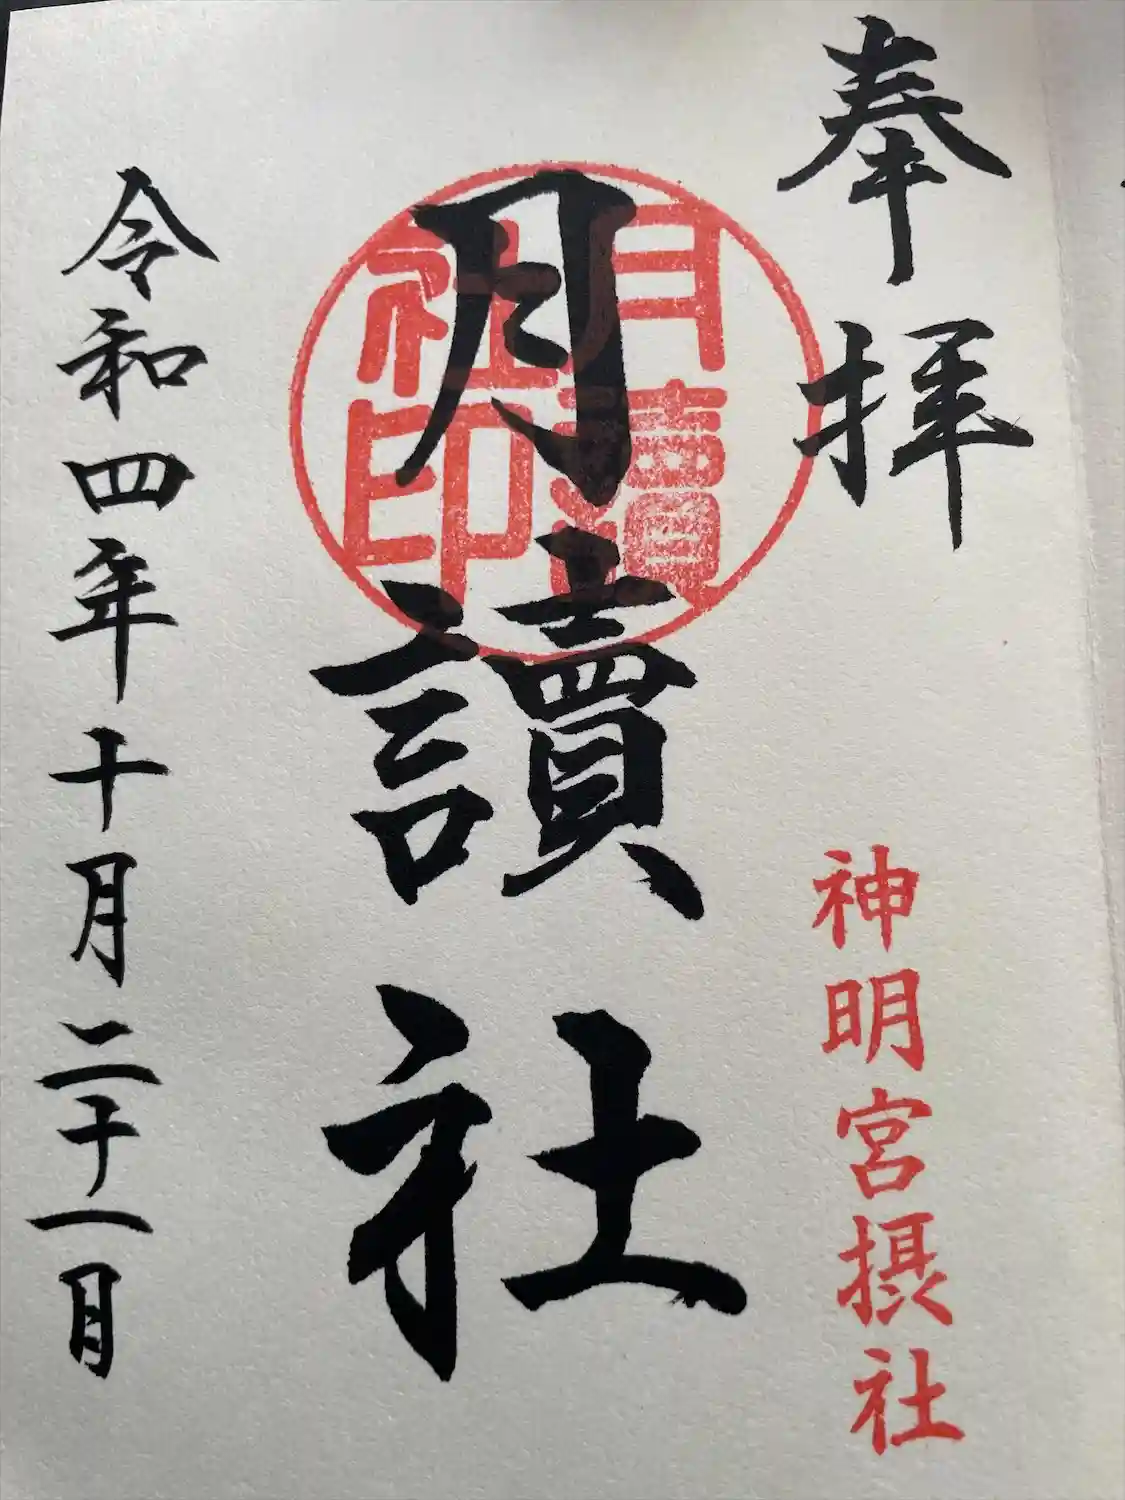 奉拝
神明宮摂社
月讀社
月讀社印
令和四年十月二十一日